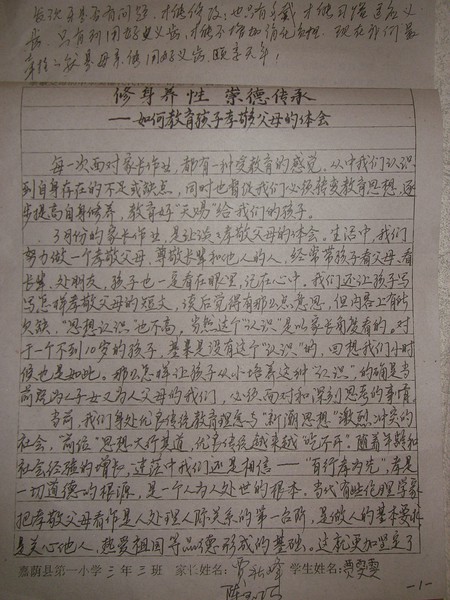 修身养性 崇德传承
——如何教育孩子孝敬父母的体会
每一次面对家长作业，都有一种受教育的感觉，从中我们认识
到自身存在的不足或缺点，同时也督促我们必须转变教育思想，逐
步提高自身修养，教育好“天赐”给我们的孩子。
3月份的家长作业，是让谈谈孝敬父母的体会。生活中，我们
努力做一个孝敬父母，尊敬长辈和他人的人，经常带孩子看父母、看
长辈、处朋友，孩子也一定看在眼里，记在心中。我们还让孩子写
写怎样孝敬父母的短文，读后觉得有那么点意思，但内容上有所
欠缺，“思想认识”也不高，当然这个“认识”是以家长角度看的，对
于一个不到10岁的孩子，基本是没有这个“认识”的，回想我们小时
候也是如此。那么怎样让孩子从小培养这种“认识”，的确是当
前为人子女又为人父母的我们，必须面对和深刻思考的事情
当前，我们身处优良传统教育理念与“新潮思想”激烈冲突的
社会，前沿“思想大行其道，优良传统越来越“吃不开”。随着年龄和
社会经验的增加，迷茫中我们还是相信——“百行孝为先”，孝是
一切道德的根源，是一个人为人处世的根本。当代有些伦理学家
把孝敬父母看作是人处理人际关系的第一台阶，是做人的基本要求
是关心他人，热爱祖国等品德形成的基础。这就更加坚定了
嘉荫县第一小学 三年三班 家长姓名： 学生姓名：
-1-